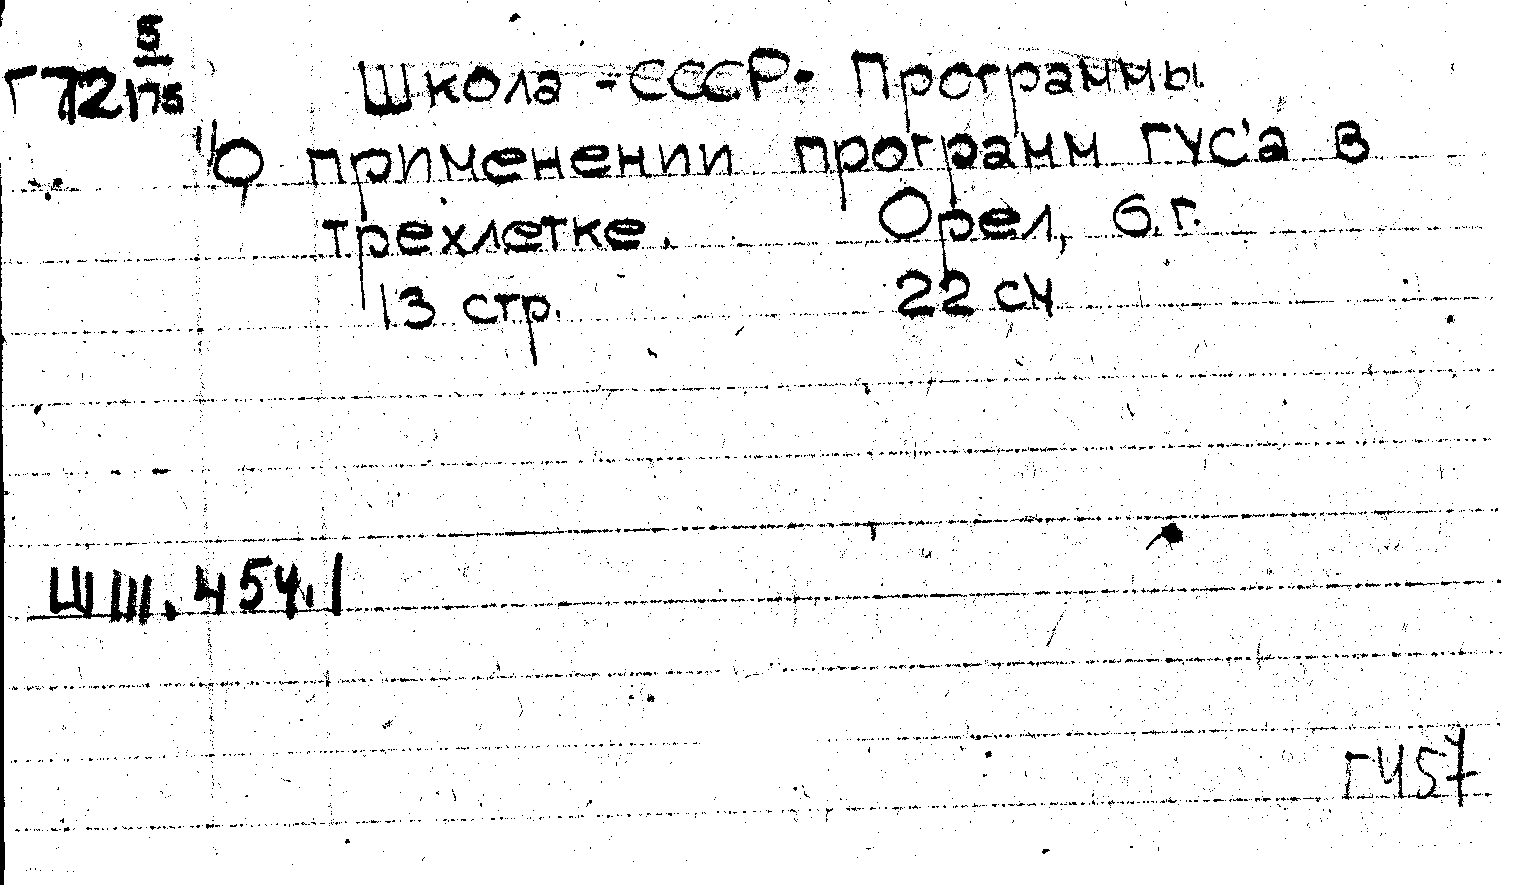 5
Г72 175
Школа - СССР - Программы
"О применении программ ГУС'а в
трехлетке. Орел, б.г.
13 стр. 22 см
ШIII.454.1
Г457